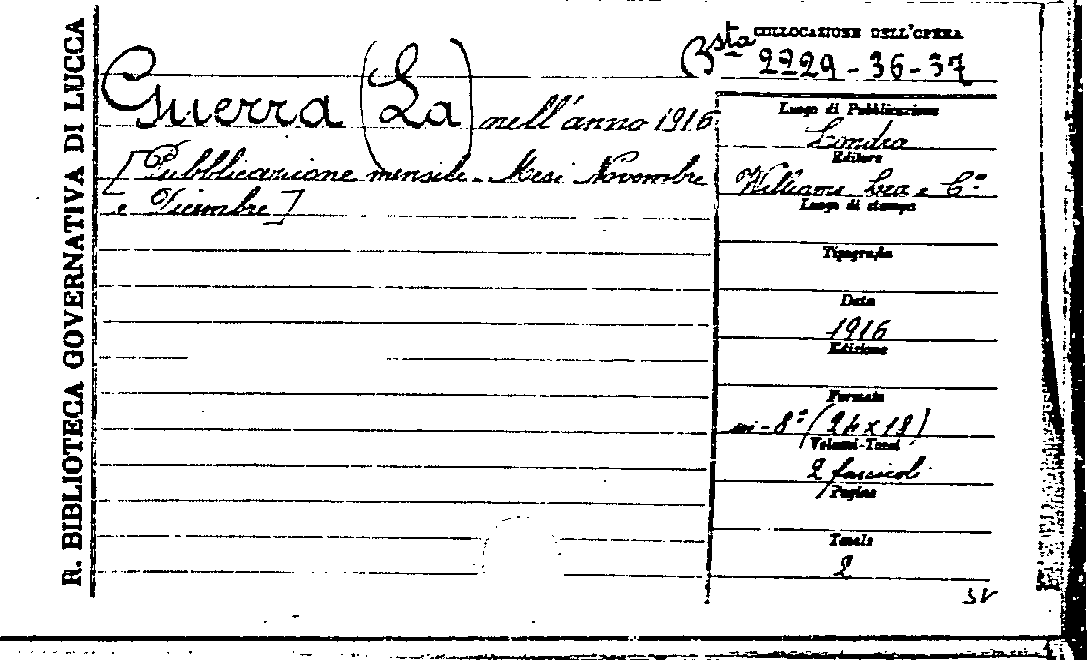 R. BIBLIOTECA GOVERNATIVA DI LUCCA
COLLOCAZIONE DELL'OPERA
Bsta 2729-36-37
Guerra (La) nell'anno 1916
[Pubblicazione mensile. Mesi Novembre
e Dicembre]
Luogo di Pubblicazione
Londra
Editore
Williams Lea e C.º
Luogo di stampa
Tipografia
Data
1916
Edizione
Formato
in-8º (24 x 18)
Volumi-Tomi
2 fascicoli
Pagine
Tavole
2